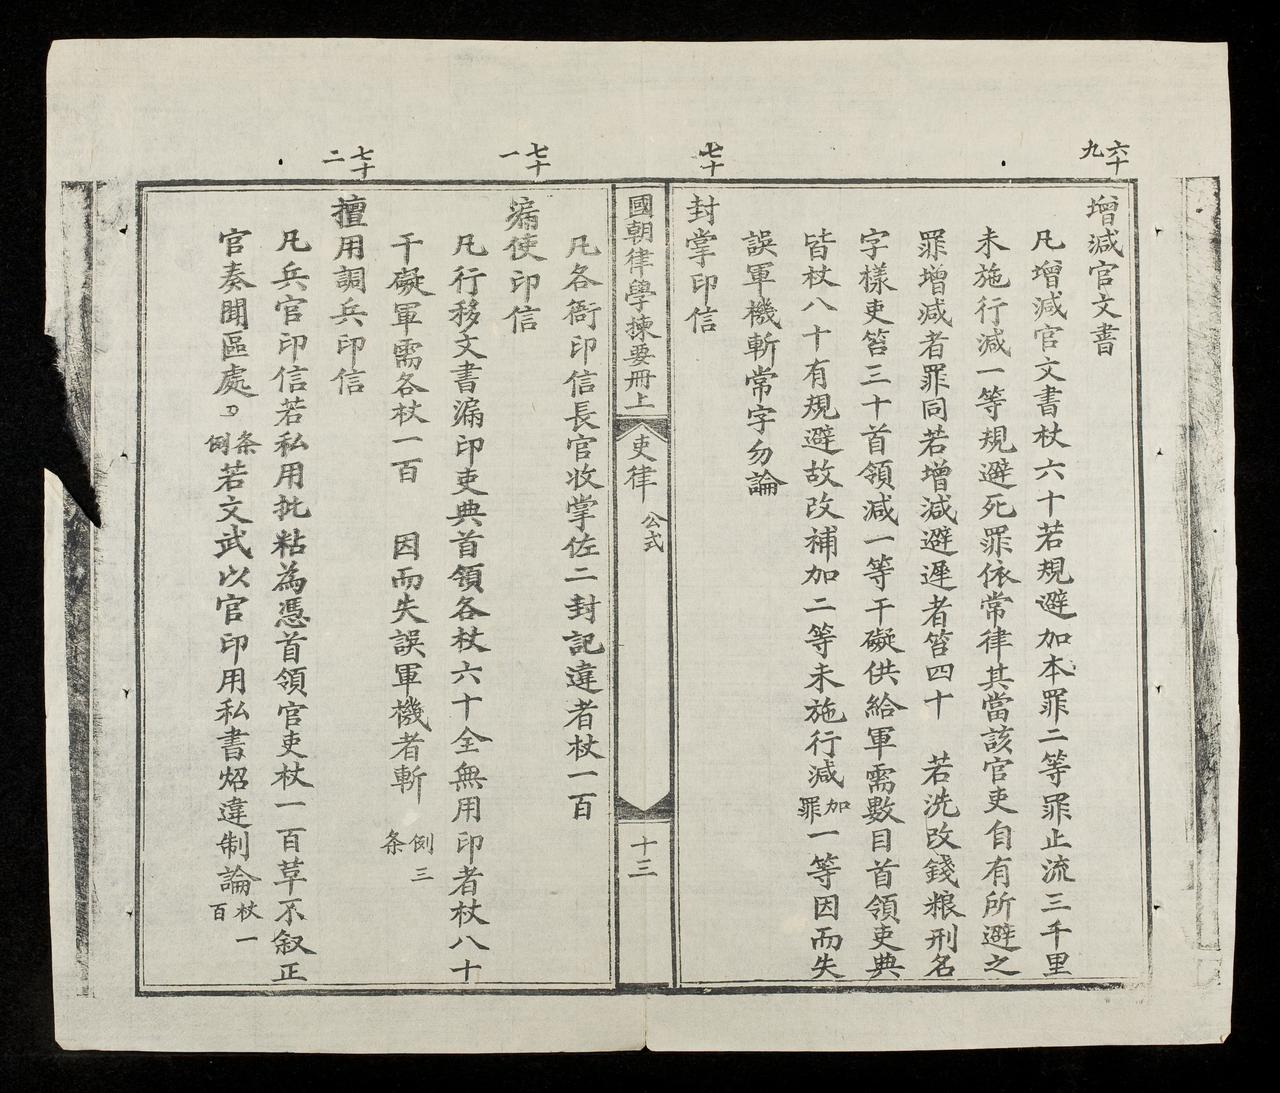 六十九
增減官文書
凡增減官文書杖六十若規避加本罪二等罪止流三千里
未施行減一等規避死罪依常律其當該官吏自有所避之
罪增減者罪同若增減避遲者笞四十　若洗改錢粮刑名
字樣吏笞三十首領減一等干礙供給軍需數目首領吏典
皆杖八十有規避故改補加二等未施行減加罪一等因而失
誤軍機斬常字勿論
七十
封掌印信
國朝律學揀要冊上　吏律　公式　十三
凡各衙印信長官收掌佐二封記違者杖一百
七十一
漏使印信
凡行移文書漏印吏典首領各杖六十全無用印者杖八十
干礙軍需各杖一百　因而失誤軍機者斬　例三条
七十二
擅用調兵印信
凡兵官印信若私用批粘為憑首領官吏杖一百草不叙正
官奏聞區處　条例若文武以官印用私書炤違制論杖一百